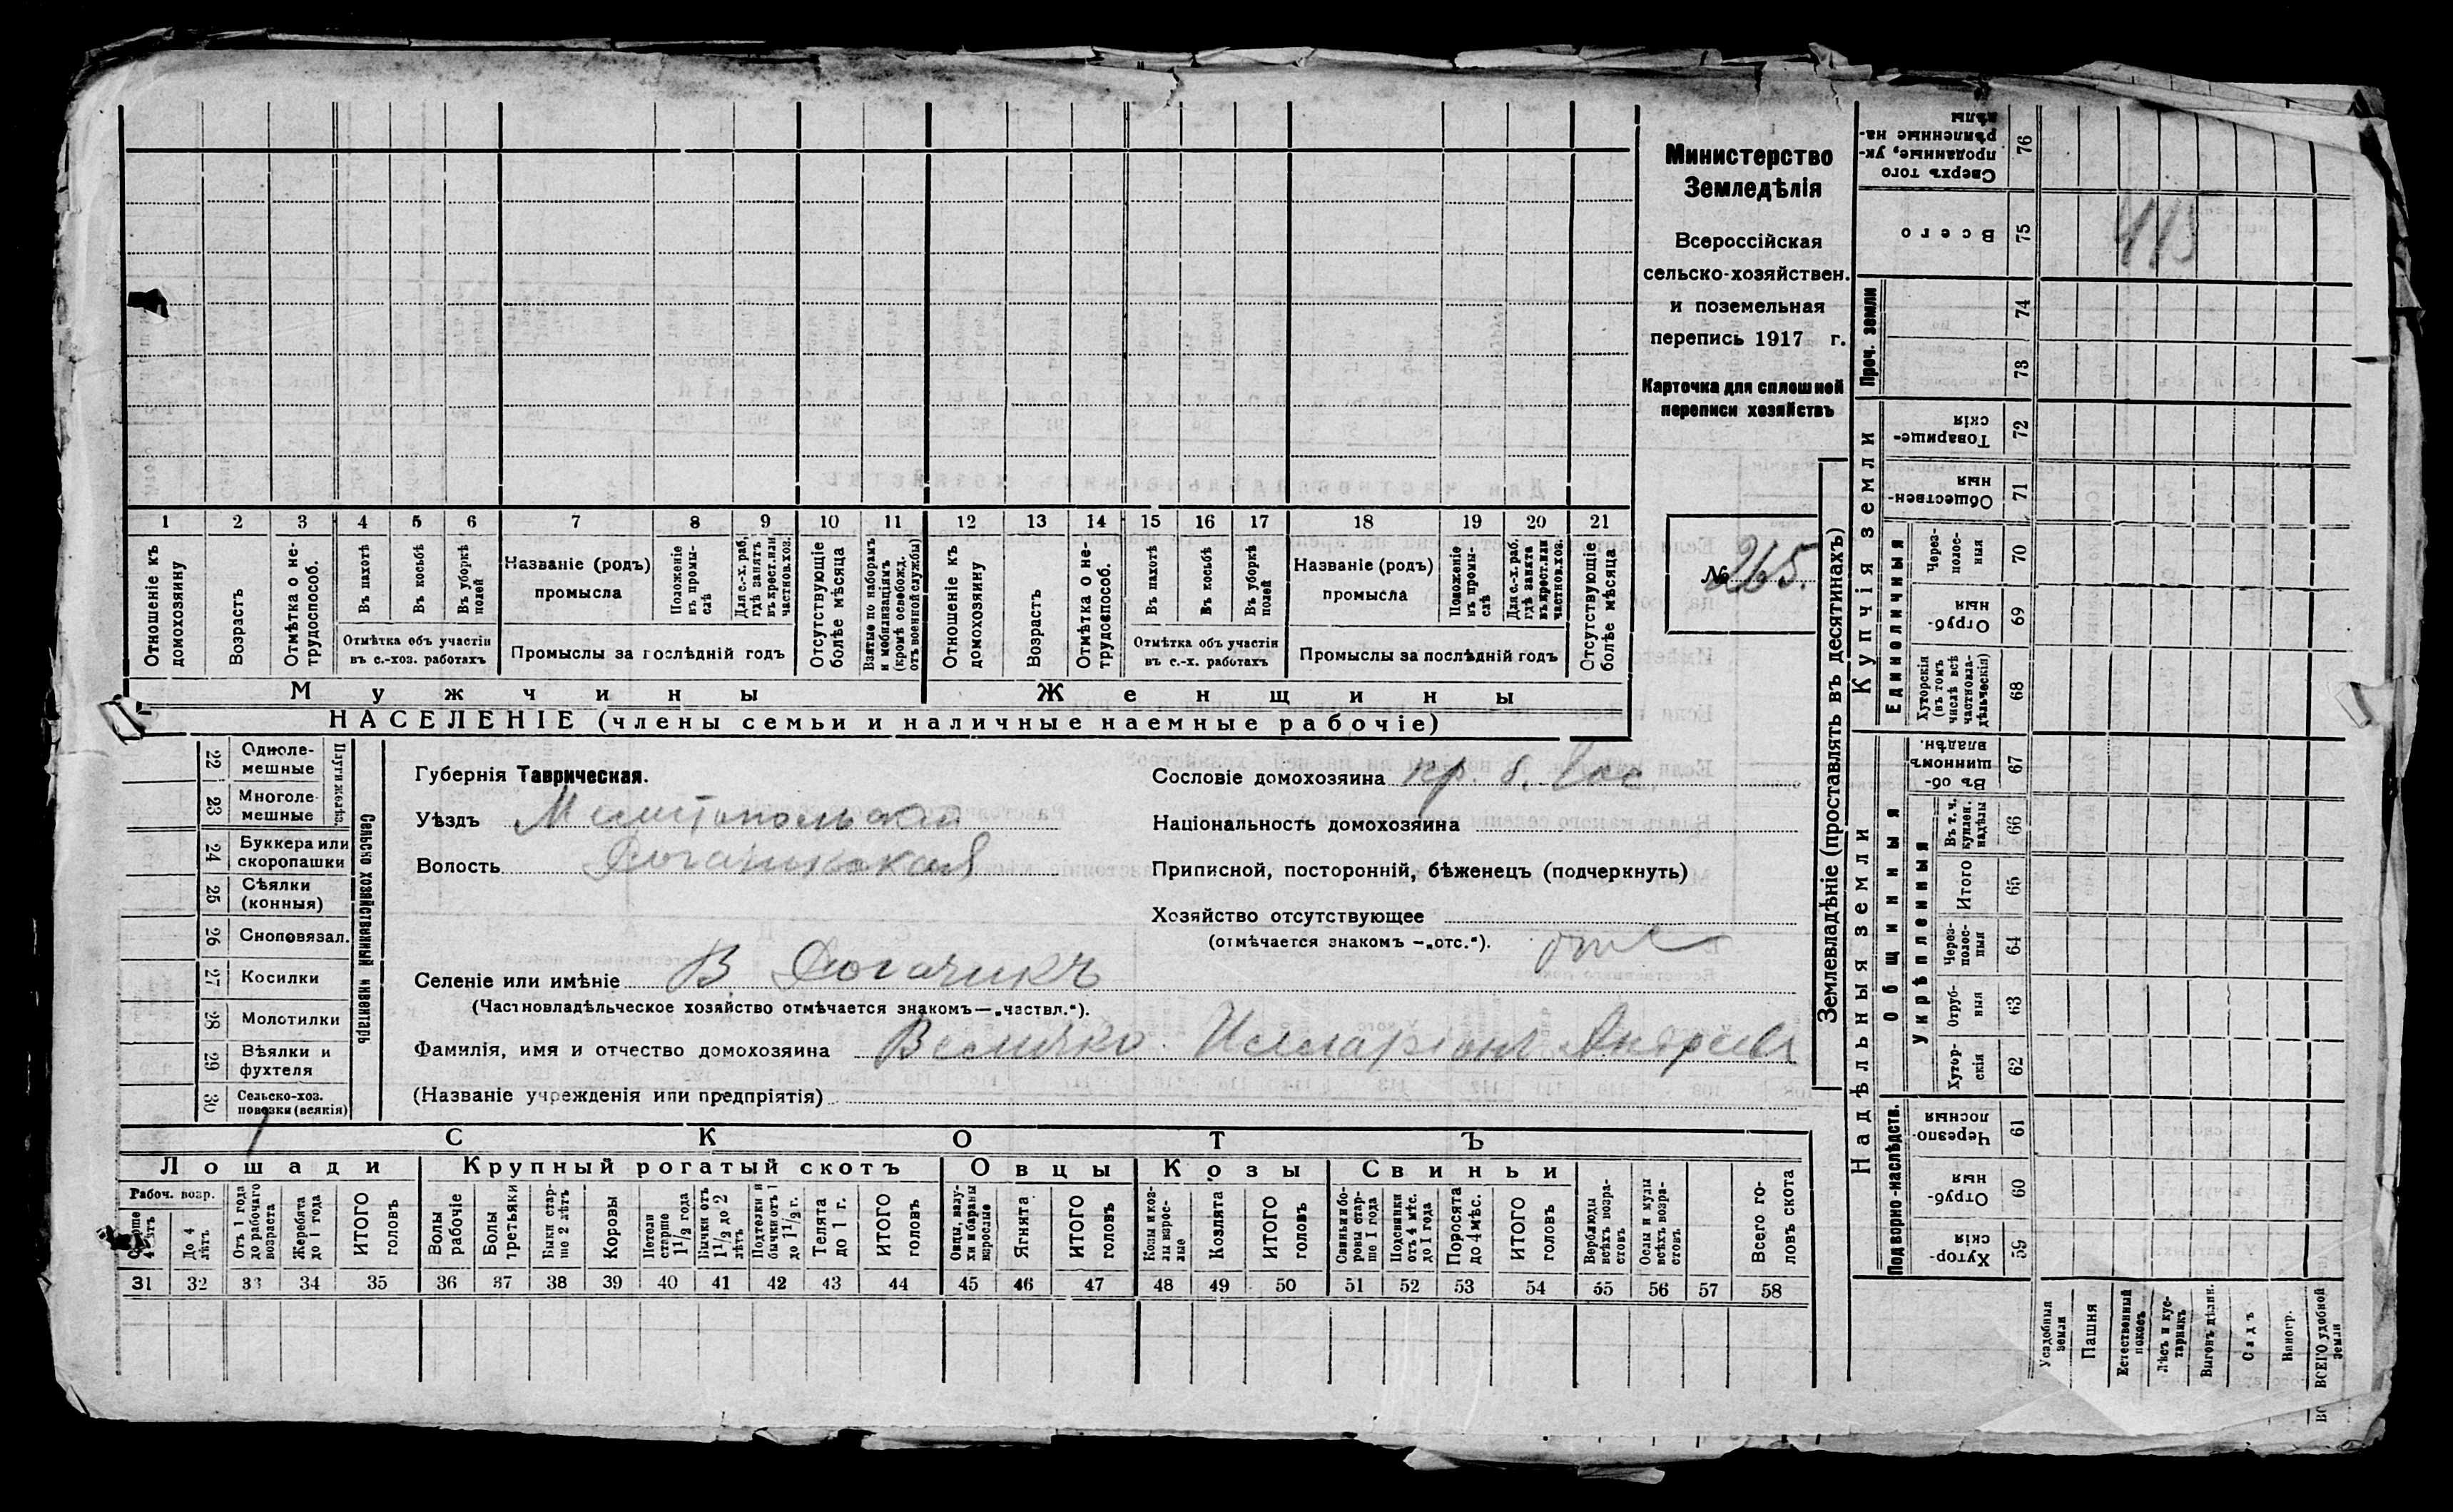 Министерство
Земледѣлія
Всероссійская
сельско-хозяйствен.
и поземельная
перепись 1917 г.
Карточка для сплошной
переписи хозяйствъ
№ 265.
1 2 3 4 5 6 7 8 9 10 11 12 13 14 15 16 17 18 19 20 21
Отношеніе къ домохозяину
Возрастъ
Отмѣтка о нетрудоспособ.
Въ пахотѣ
Въ косьбѣ
Въ уборкѣ полей
Отмѣтка объ участіи въ с.-хоз. работахъ
Названіе (родъ) промысла
Положеніе въ промыслѣ
Для с.-х. раб. гдѣ занятъ въ крест. или частнов. хоз.
Промыслы за послѣдній годъ
Отсутствующіе болѣе мѣсяца
Взятые по наборамъ и мобилизаціямъ (кромѣ освобожд. отъ военной службы)
Отношеніе къ домохозяину
Возрастъ
Отмѣтка о нетрудоспособ.
Въ пахотѣ
Въ косьбѣ
Въ уборкѣ полей
Отмѣтка объ участіи въ с.-х. работахъ
Названіе (родъ) промысла
Положеніе въ промыслѣ
Для с.-х. раб. гдѣ занята въ крест. или частнов. хоз.
Промыслы за послѣдній годъ
Отсутствующіе болѣе мѣсяца
Мужчины
Женщины
НАСЕЛЕНІЕ (члены семьи и наличные наемные рабочіе)
Сельско хозяйственный инвентарь
Плуги желѣз.
22 Одноле-мешные
23 Многоле-мешные
24 Буккера или скоропашки
25 Сѣялки (конныя)
26 Сноповязал.
27 Косилки
28 Молотилки
29 Вѣялки и фухтеля
30 Сельско-хоз. повозки (всякія)
Губернія Таврическая.
Уѣздъ Мелитопольскій
Волость Рогачикская
Селеніе или имѣніе В. Рогачикъ
(Частновладѣльческое хозяйство отмѣчается знакомъ—„частвл.“).
Фамилія, имя и отчество домохозяина Величко Илларіонъ Андреев
(Названіе учрежденія или предпріятія)
Сословіе домохозяина кр. б.
Національность домохозяина
Приписной, посторонній, бѣженецъ (подчеркнуть)
Хозяйство отсутствующее
(отмѣчается знакомъ —„отс.“). отс
СКОТЪ
Лошади Крупный рогатый скотъ Овцы Козы Свиньи
Рабоч. возр.
Старше 4 лѣтъ
До 4 лѣтъ
Отъ 1 года до рабочаго возраста
Жеребята до 1 года
ИТОГО головъ
Волы рабочіе
Волы третьяки
Быки старше 2 лѣтъ
Коровы
Нетели старше 1 1/2 года
Бычки отъ 1 1/2 до 2 лѣтъ
Подтелки и бычки отъ 1 до 1 1/2 г.
Телята до 1 г.
ИТОГО головъ
Овцы, валухи и бараны взрослые
Ягнята
ИТОГО головъ
Козы и козлы взрослые
Козлята
ИТОГО головъ
Свиньи и боровы старше 1 года
Подсвинки отъ 4 мѣс. до 1 года
Поросята до 4 мѣс.
ИТОГО головъ
Верблюды всѣхъ возрастовъ
Ослы и мулы всѣхъ возрастовъ
Всего головъ скота
31 32 33 34 35 36 37 38 39 40 41 42 43 44 45 46 47 48 49 50 51 52 53 54 55 56 57 58
Землевладѣніе (проставлять въ десятинахъ)
Надѣльныя земли
Купчія земли
Проч. земли
Подворно-наслѣдств.
Общинныя
Укрѣпленныя
Единоличныя
Сверхъ того проданные, укрѣпленные надѣлы 76
Всего 75
415
74
73
Товарищескія 72
Общественныя 71
Черезполосныя 70
Отрубныя 69
Хуторскія (въ томъ числѣ всѣ частновладѣльческія) 68
Въ общинномъ владѣн. 67
Въ т. ч. куплен. надѣлы 66
Итого 65
Черезполосныя 64
Отрубныя 63
Хуторскія 62
Черезполосныя 61
Отрубныя 60
Хуторскія 59
Усадебныя земли
Пашня
Естественный покосъ
Лѣсъ и кустарникъ
Выгонъ дѣлин.
Садъ
Виногр.
ВСЕГО удобной земли